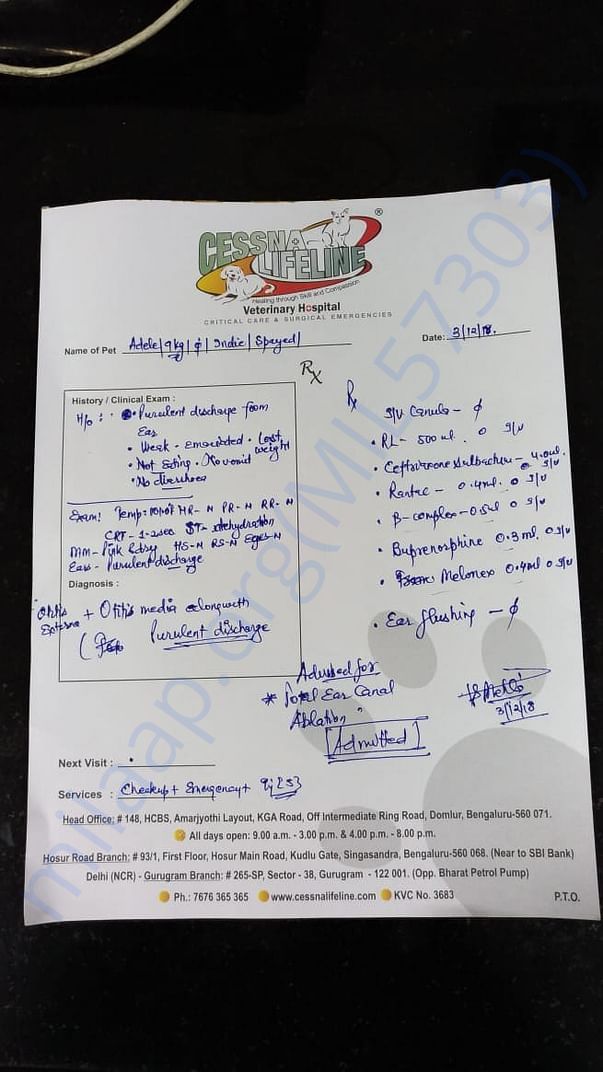 CESSNA
LIFELINE
®
Healing through Skill and Compassion
Veterinary Hospital
CRITICAL CARE & SURGICAL EMERGENCIES
Name of Pet Adele/9kg/ /Indie/Speyed/
Date: 3/12/18.
Rx
History / Clinical Exam :
H/o : • Purulent discharge from
Ear
• Weak - emaciated. Lost weight
• Not Eating. No vomit
• No diarrhoea
Exam: Temp= HR- N PR- N RR- N
CRT- 1-2secs ST- dehydration
MM- Pink & dry HS-N RS-N Eyes-N
Ears- Purulent discharge
Diagnosis :
Otitis Externa + Otitis media alongwith
Purulent discharge
Rx
I/V Canula -
• RL- 500ml. I/V
• Ceftriaxone Sulbactum - I/V
• Rantac - 0.4ml. I/V
• B-complex - 0.5ml I/V
• Buprenorphine 0.3ml. I/V
• Melonex 0.4ml I/V
• Ear flushing -
Admitted for
* Total Ear Canal
Ablation
[Admitted]
3/12/18
Next Visit :
Services : Checkup + Emergency +
Head Office: # 148, HCBS, Amarjyothi Layout, KGA Road, Off Intermediate Ring Road, Domlur, Bengaluru-560 071.
All days open: 9.00 a.m. - 3.00 p.m. & 4.00 p.m. - 8.00 p.m.
Hosur Road Branch: # 93/1, First Floor, Hosur Main Road, Kudlu Gate, Singasandra, Bengaluru-560 068. (Near to SBI Bank)
Delhi (NCR) - Gurugram Branch: # 265-SP, Sector - 38, Gurugram - 122 001. (Opp. Bharat Petrol Pump)
Ph.: 7676 365 365 www.cessnalifeline.com KVC No. 3683
P.T.O.
milaap.org(MIL57303)